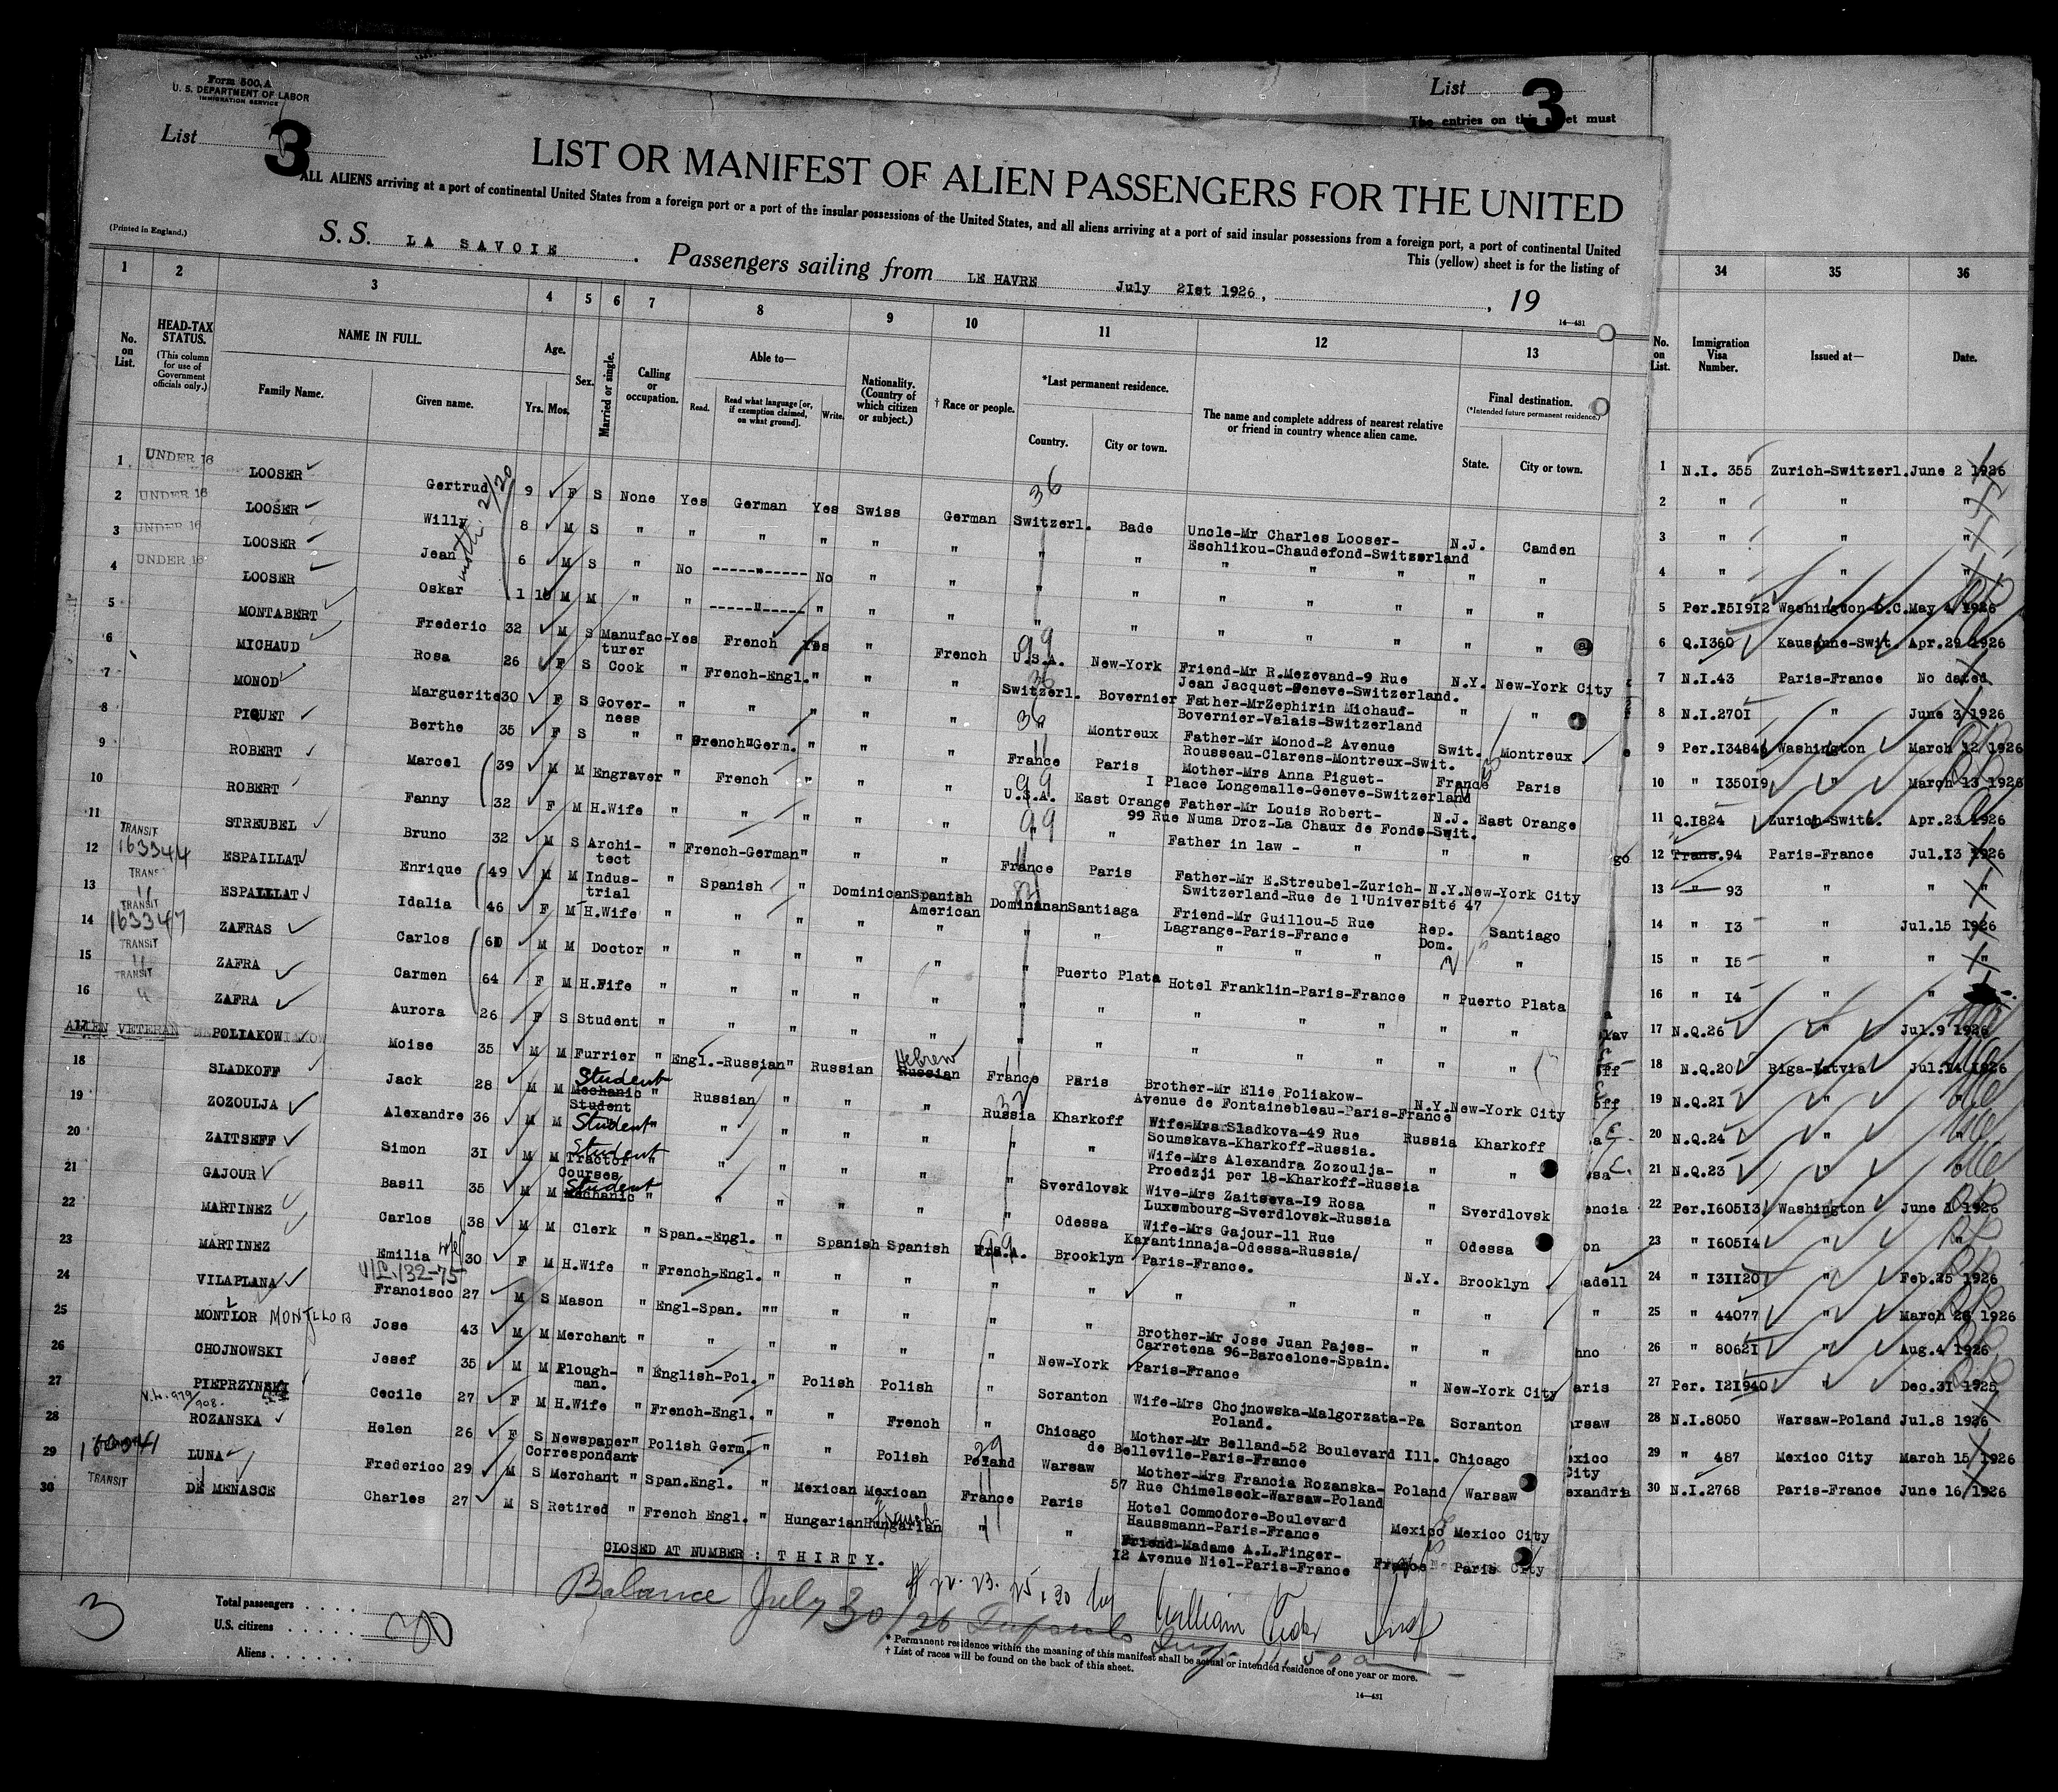 Form 500.A
U. S. DEPARTMENT OF LABOR
IMMIGRATION SERVICE
List 3
List 3
The entries on this sheet must
LIST OR MANIFEST OF ALIEN PASSENGERS FOR THE UNITED
ALL ALIENS arriving at a port of continental United States from a foreign port or a port of the insular possessions of the United States, and all aliens arriving at a port of said insular possessions from a foreign port, a port of continental United
This (yellow) sheet is for the listing of
(Printed in England.)
S. S. LA SAVOIE . Passengers sailing from LE HAVRE July 2Ist 1926, , 19
14—431
1 2 3 4 5 6 7 8 9 10 11 12 13 34 35 36
No. on List.
HEAD-TAX STATUS.
(This column for use of Government officials only.)
NAME IN FULL.
Family Name. Given name.
Age. Yrs. Mos.
Sex.
Married or single.
Calling or occupation.
Able to—
Read. Read what language [or, if exemption claimed, on what ground]. Write.
Nationality. (Country of which citizen or subject.)
† Race or people.
*Last permanent residence.
Country. City or town.
The name and complete address of nearest relative or friend in country whence alien came.
Final destination.
(*Intended future permanent residence.)
State. City or town.
No. on List. Immigration Visa Number. Issued at— Date.
1 UNDER 16 LOOSER Gertrud 9 F S None Yes German Yes Swiss German Switzerl. Bade Uncle-Mr Charles Looser- Eschlikou-Chaudefond-Switzerland N.J. Camden
2 UNDER 16 LOOSER Willy 8 M S " " " " " " " " " " "
3 UNDER 16 LOOSER Jean 6 M S " No " No " " " " " " "
4 UNDER 16 LOOSER Oskar 1 10 M M " " " " " " " " " " "
5 MONTABERT Frederic 32 M S Manufacturer Yes French Yes " French U.S.A. New-York Friend-Mr R.Mezevand-9 Rue Jean Jacquet-Geneve-Switzerland. N.Y. New-York City
6 MICHAUD Rosa 26 F S Cook " French-Engl. " " " Switzerl. Bovernier Father-MrZephirin Michaud- Bovernier-Valais-Switzerland " "
7 MONOD Marguerite 30 F S Governess " " " " " " Montreux Father-Mr Monod-2 Avenue Rousseau-Clarens-Montreux-Swit. Swit. Montreux
8 PIQUET Berthe 35 F S " " French"Germ. " " " France Paris Mother-Mrs Anna Piguet- I Place Longemalle-Geneve-Switzerland France Paris
9 ROBERT Marcel 39 M M Engraver " French " " " U.S.A. East Orange Father-Mr Louis Robert- 99 Rue Numa Droz-La Chaux de Fonds-Swit. N.J. East Orange
10 ROBERT Fanny 32 F M H.Wife " " " " " " " Father in law - " " "
11 STREUBEL Bruno 32 M S Architect " French-German " " " France Paris Father-Mr E.Streubel-Zurich- Switzerland-Rue de l'Université 47 N.Y. New-York City
12 TRANSIT 163344 ESPAILLAT Enrique 49 M M Industrial " Spanish " Dominican Spanish American Dominican Santiago Friend-Mr Guillou-5 Rue Lagrange-Paris-France Rep. Dom. Santiago
13 TRANSIT " ESPAILLAT Idalia 46 F M H.Wife " " " " " " " " " " "
14 TRANSIT 163347 ZAFRAS Carlos 61 M M Doctor " " " " " " Puerto Plata Hotel Franklin-Paris-France " Puerto Plata
15 TRANSIT " ZAFRA Carmen 64 F M H.Fife " " " " " " " " " " "
16 TRANSIT " ZAFRA Aurora 26 F S Student " " " " " " " " " " "
17 ALIEN VETERAN POLIAKOW Moise 35 M M Furrier " Engl.-Russian " Russian Russian Hebrew France Paris Brother-Mr Elie Poliakow- Avenue de Fontainebleau-Paris-France N.Y. New-York City
18 SLADKOFF Jack 28 M M Mechanic Student Student " Russian " " " Russia Kharkoff Wife-Mrs Sladkova-49 Rue Soumskava-Kharkoff-Russia. Russia Kharkoff
19 ZOZOULJA Alexandre 36 M M Student " " " " " " " Wife-Mrs Alexandra Zozoulja- Proedzji per 18-Kharkoff-Russia " "
20 ZAITSEFF Simon 3I M M Tractor Courses Student " " " " " " Sverdlovsk Wive-Mrs Zaitseva-I9 Rosa Luxembourg-Sverdlovsk-Russia " Sverdlovsk
21 GAJOUR Basil 35 M M Mechanic Student " " " " " " Odessa Wife-Mrs Gajour-11 Rue Karantinnaja-Odessa-Russia/ " Odessa
22 MARTINEZ Carlos 38 M M Clerk " Span.-Engl. " Spanish Spanish Brooklyn Paris-France. N.Y. Brooklyn
23 MARTINEZ Emilia 30 F M H.Wife " French-Engl. " " " " " " " "
24 VILAPLANA Francisco 27 M S Mason " Engl-Span. " " " " " " Brother-Mr Jose Juan Pajes- Carretena 96-Barcelone-Spain. " "
25 MONTLOR MONTLLOR Jose 43 M M Merchant " " " " " " New-York Paris-France " New-York City
26 CHOJNOWSKI Josef 35 M M Ploughman. " English-Pol. " Polish Polish " Scranton Wife-Mrs Chojnowska-Malgorzata- Poland. Pa Scranton
27 PIEPRZYNSKI Cecile 27 F M H.Wife " French-Engl. " " French " Chicago Mother-Mr Belland-52 Boulevard de Bellevile-Paris-France Ill. Chicago
28 ROZANSKA Helen 26 F S Newspaper Correspondant " Polish Germ. " " Polish Poland Warsaw Mother-Mrs Francia Rozanska- 57 Rue Chimelseck-Warsaw-Poland Poland Warsaw
29 LUNA Frederico 29 M S Merchant " Span.Engl. " Mexican Mexican France Paris Hotel Commodore-Boulevard Haussmann-Paris-France Mexico Mexico City
30 TRANSIT DE MENASCE Charles 27 M S Retired " French Engl. " Hungarian Hungarian French " " Friend-Madame A.L.Finger- 12 Avenue Niel-Paris-France France Paris City
CLOSED AT NUMBER : T H I R T Y.
1 N.I. 355 Zurich-Switzerl. June 2 1926
2 " " "
3 " " "
4 " " "
5 Per.I5I9I2 Washington-D.C. May 4 1926
6 Q.I360 Kausanne-Swit. Apr.29 1926
7 N.I.43 Paris-France No dated
8 N.I.270I " June 3 1926
9 Per.I34846 Washington March 12 1926
10 " I350I9 " March 13 1926
11 Q.I824 Zurich-Switz. Apr.23 1926
12 Trans.94 Paris-France Jul.I3 1926
13 " 93 " "
14 " I3 " Jul.15 1926
15 " I5 " "
16 " I4 " "
17 N.Q.26 " Jul.9 1926
18 N.Q.20 Riga-Latvia Jul.14 1926
19 N.Q.2I " "
20 N.Q.24 " "
21 N.Q.23 " "
22 Per.I605I3 Washington June 1 1926
23 " I605I4 " "
24 " I3II20 " Feb.25 1926
25 " 44077 " March 26 1926
26 " 8062I " Aug.4 1926
27 Per. I2I940 " Dec.31 1925
28 N.I.8050 Warsaw-Poland Jul.8 1926
29 " 487 Mexico City March 15 1926
30 N.I.2768 Paris-France June 16 1926
3
Total passengers
U.S. citizens
Aliens
30
Balance July 30/26
# 22. 23. 25, 30 by William
* Permanent residence within the meaning of this manifest shall be actual or intended residence of one year or more.
† List of races will be found on the back of this sheet.
14—431